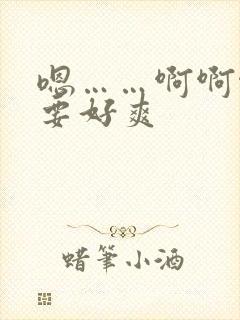 嗯……啊啊
要好爽
蜡笔小酒